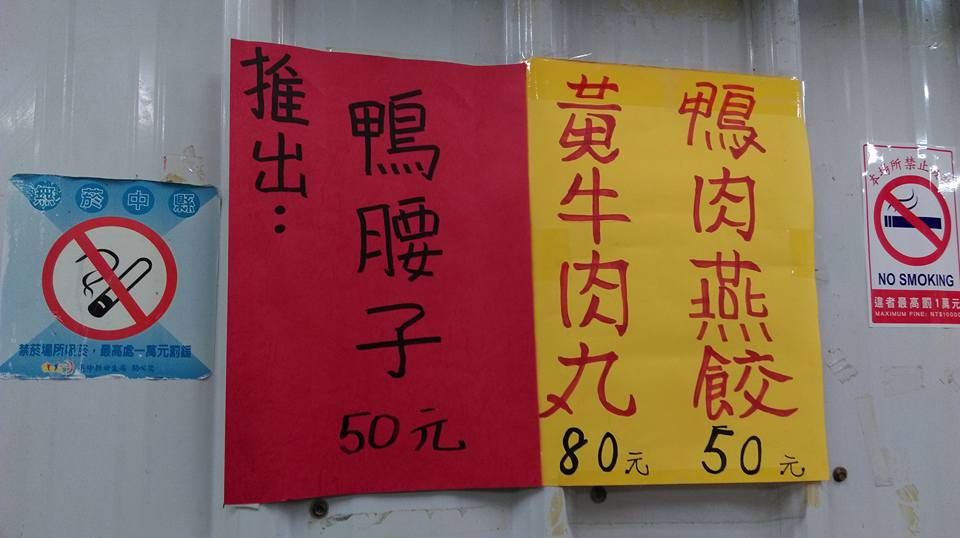 無菸中縣
禁菸場所吸菸，最高處一萬元罰鍰
推出：
鴨腰子
50元
鴨肉燕餃
50元
黃牛肉丸
80元
本場所禁止
NO SMOKING
違者最高罰1萬元
MAXIMUM FINE: NT$10000